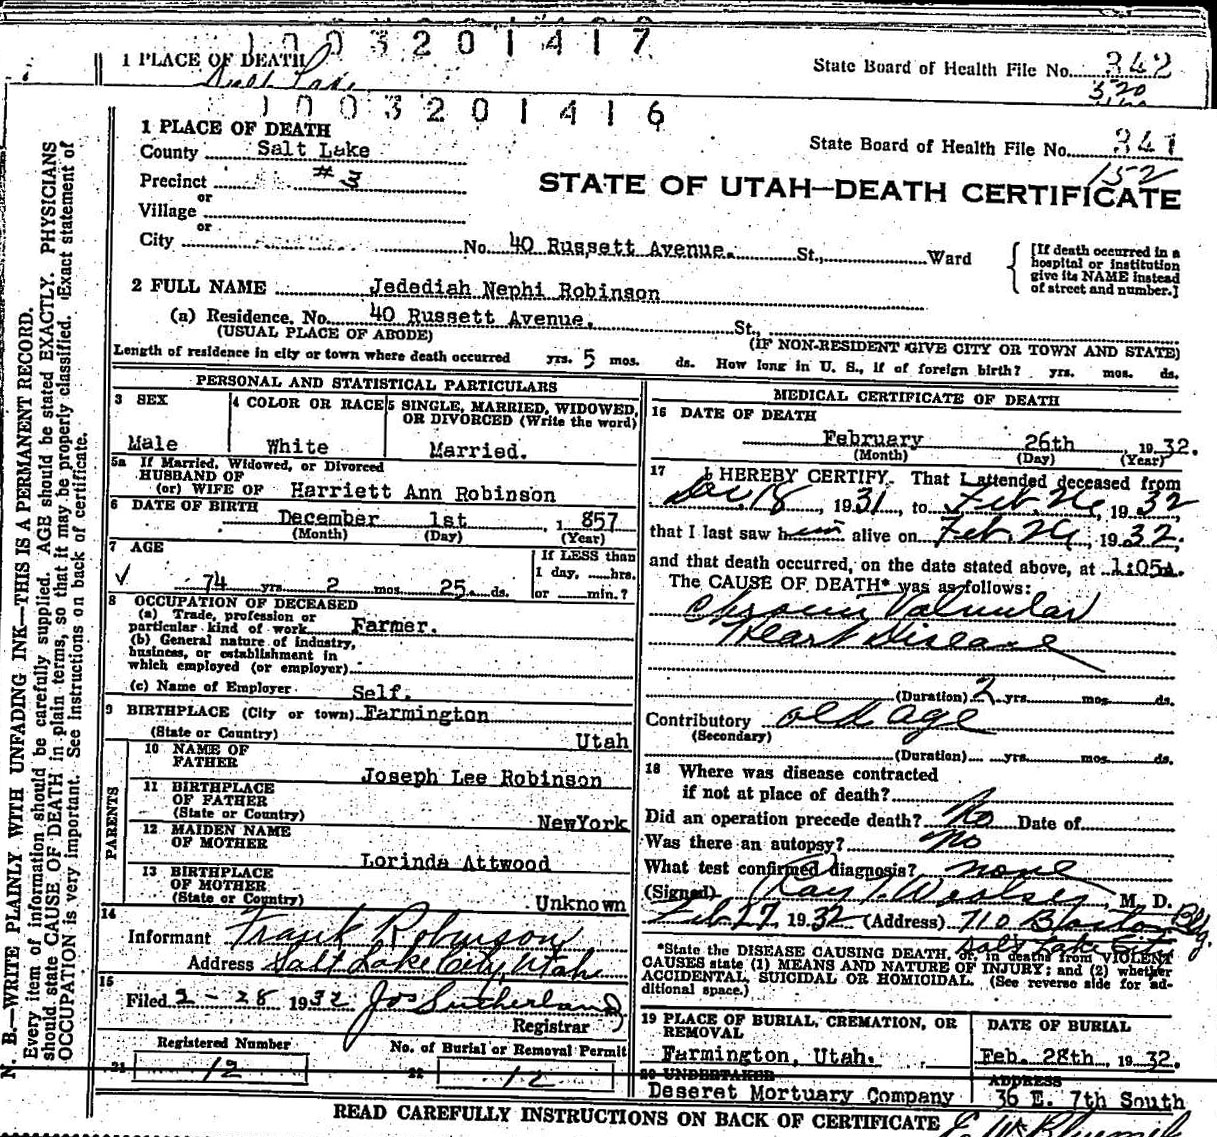 1003201417
1 PLACE OF DEATH
State Board of Health File No. 342
Salt Lake
320
1003201416
1 PLACE OF DEATH
State Board of Health File No. 341
152
County Salt Lake
Precinct #3
STATE OF UTAH—DEATH CERTIFICATE
or
Village
or
City No. 40 Russett Avenue. St., Ward
[If death occurred in a hospital or institution give its NAME instead of street and number.]
2 FULL NAME Jedediah Nephi Robinson
(a) Residence. No. 40 Russett Avenue. St.,
(USUAL PLACE OF ABODE) (IF NON-RESIDENT GIVE CITY OR TOWN AND STATE)
Length of residence in city or town where death occurred yrs. 5 mos. ds. How long in U. S., if of foreign birth? yrs. mos. ds.
PERSONAL AND STATISTICAL PARTICULARS
3 SEX 4 COLOR OR RACE 5 SINGLE, MARRIED, WIDOWED,
OR DIVORCED (Write the word)
Male White Married.
5a If Married, Widowed, or Divorced
HUSBAND OF
(or) WIFE OF Harriett Ann Robinson
6 DATE OF BIRTH
December 1st , 1857
(Month) (Day) (Year)
7 AGE If LESS than
1 day, hrs.
74 yrs. 2 mos. 25. ds. or min.?
8 OCCUPATION OF DECEASED
(a) Trade, profession or
particular kind of work Farmer.
(b) General nature of industry,
business, or establishment in
which employed (or employer)
(c) Name of Employer Self.
9 BIRTHPLACE (City or town) Farmington
(State or Country) Utah
PARENTS
10 NAME OF
FATHER Joseph Lee Robinson
11 BIRTHPLACE
OF FATHER
(State or Country) NewYork
12 MAIDEN NAME
OF MOTHER Lorinda Attwood
13 BIRTHPLACE
OF MOTHER
(State or Country) Unknown
14
Informant Frank Robinson
Address Salt Lake City, Utah
15
Filed 2-28 1932 Jos Sutherland
Registrar
Registered Number No. of Burial or Removal Permit
21 12 22 12
MEDICAL CERTIFICATE OF DEATH
16 DATE OF DEATH
February 26th 1932.
(Month) (Day) (Year)
17 I HEREBY CERTIFY, That I attended deceased from
Dec. 18, 1931, to Feb. 26, 1932,
that I last saw him alive on Feb. 26, 1932,
and that death occurred, on the date stated above, at 1:05A.
The CAUSE OF DEATH* was as follows:
Chronic Valvular
Heart Disease
(Duration) 2 yrs. mos. ds.
Contributory old age
(Secondary)
(Duration) yrs. mos. ds.
18 Where was disease contracted
if not at place of death?
Did an operation precede death? No Date of
Was there an autopsy? No
What test confirmed diagnosis? none
(Signed) Ray T. Woolsey, M. D.
Feb 27 1932 (Address) 710 Boston Bldg.
Salt Lake City
*State the DISEASE CAUSING DEATH, or, in deaths from VIOLENT
CAUSES state (1) MEANS AND NATURE OF INJURY; and (2) whether
ACCIDENTAL, SUICIDAL OR HOMICIDAL. (See reverse side for additional space.)
19 PLACE OF BURIAL, CREMATION, OR
REMOVAL DATE OF BURIAL
Farmington, Utah. Feb. 28th, 1932.
20 UNDERTAKER ADDRESS
Deseret Mortuary Company 36 E. 7th South
READ CAREFULLY INSTRUCTIONS ON BACK OF CERTIFICATE
N. B.—WRITE PLAINLY WITH UNFADING INK—THIS IS A PERMANENT RECORD.
Every item of information should be carefully supplied. AGE should be stated EXACTLY. PHYSICIANS
should state CAUSE OF DEATH in plain terms, so that it may be properly classified. Exact statement of
OCCUPATION is very important. See instructions on back of certificate.